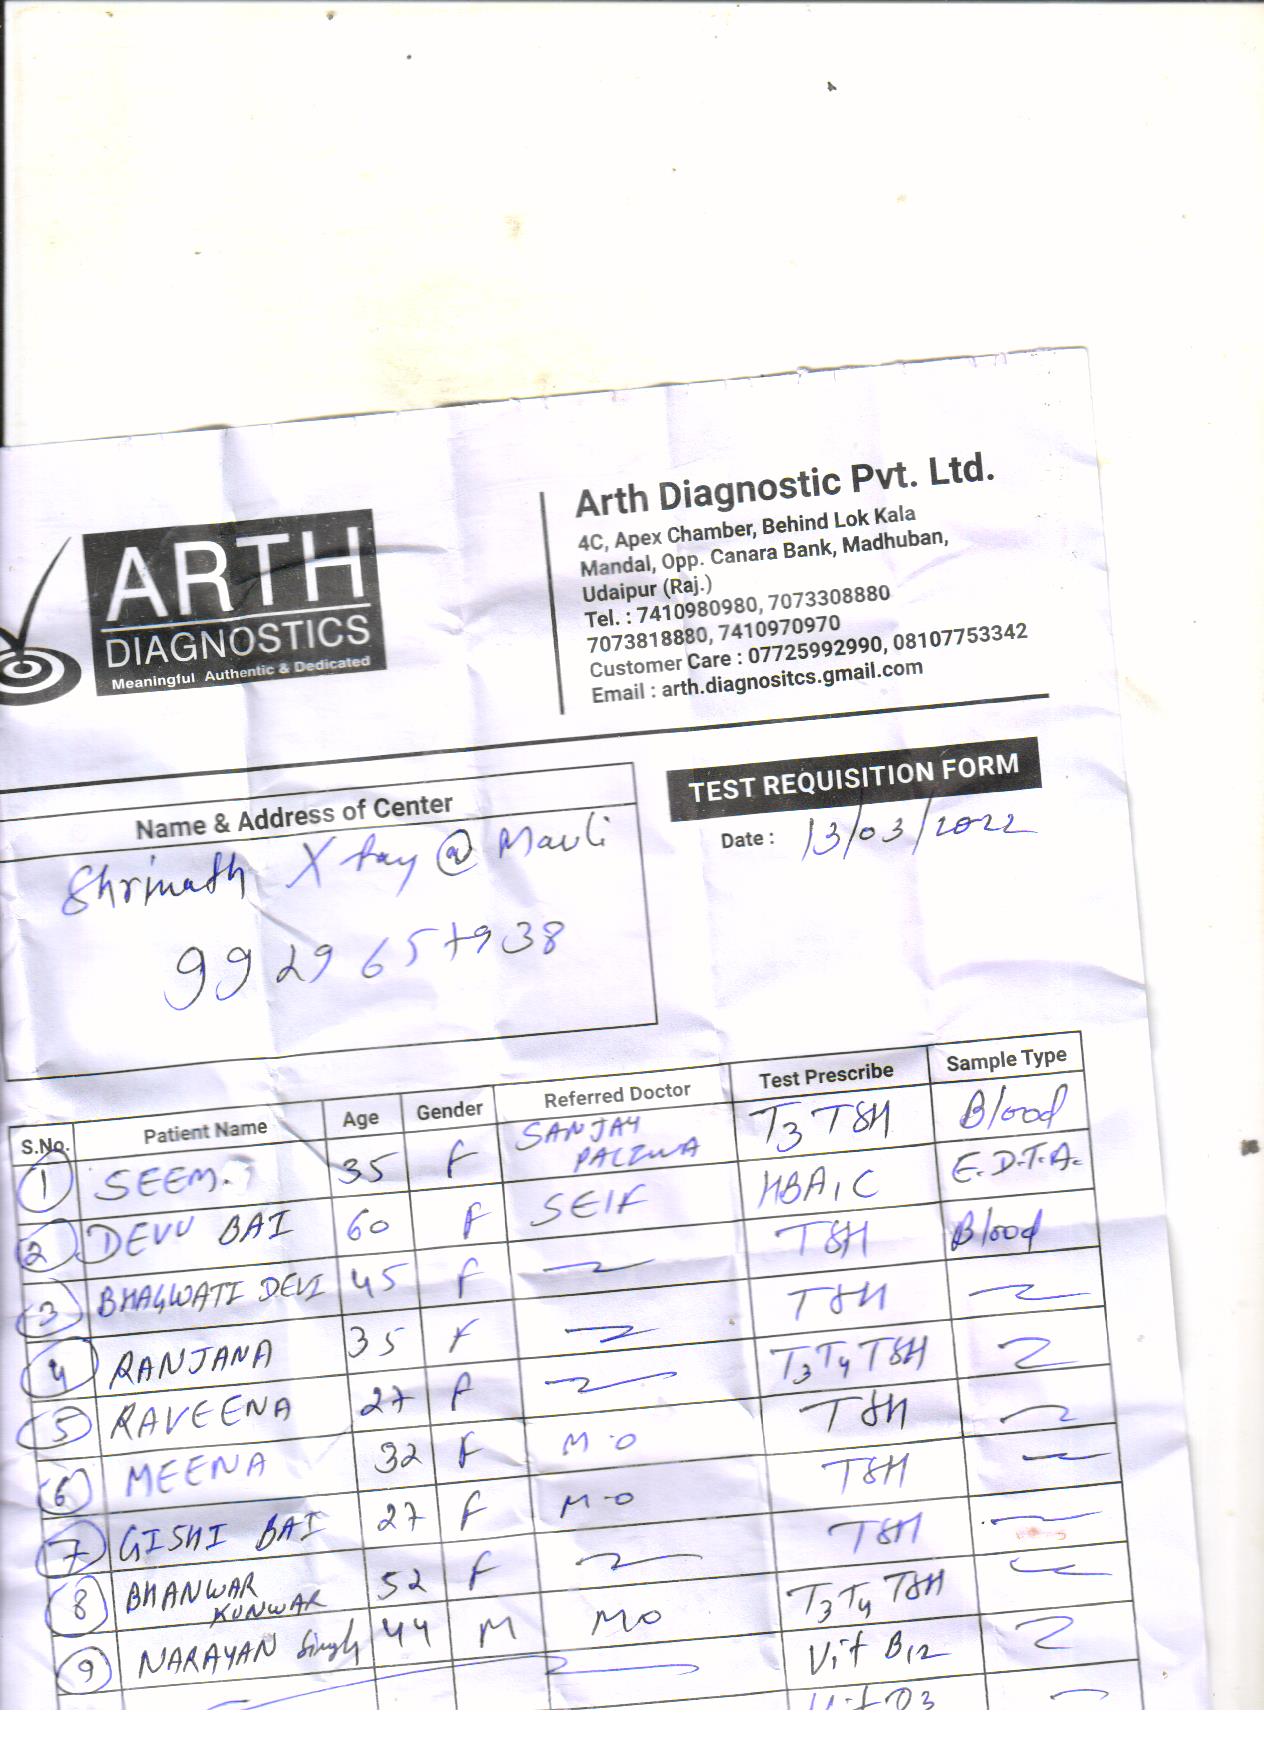 ARTH
DIAGNOSTICS
Meaningful Authentic & Dedicated
Arth Diagnostic Pvt. Ltd.
4C, Apex Chamber, Behind Lok Kala
Mandal, Opp. Canara Bank, Madhuban,
Udaipur (Raj.)
Tel. : 7410980980, 7073308880
7073818880, 7410970970
Customer Care : 07725992990, 08107753342
Email : arth.diagnositcs.gmail.com
TEST REQUISITION FORM
Date : 13/03/2022
Name & Address of Center
Shrinath X Ray @ Mavli
9929657938
S.No. Patient Name Age Gender Referred Doctor Test Prescribe Sample Type
1 SEEM 35 F SANJAY T3 TSH Blood
2 DEVU BAI 60 F SELF HBA1C E.D.T.A.
3 BHAGWATI DEVI 45 F TSH Blood
4 RANJANA 35 F TSH
5 RAVEENA 27 F T3 T4 TSH
6 MEENA 32 F M.O TSH
7 GISHI BAI 27 F M.O TSH
8 BHANWAR KUNWAR 52 F TSH
9 NARAYAN Singh 44 M MO T3 T4 TSH
Vit B12
Vit D3